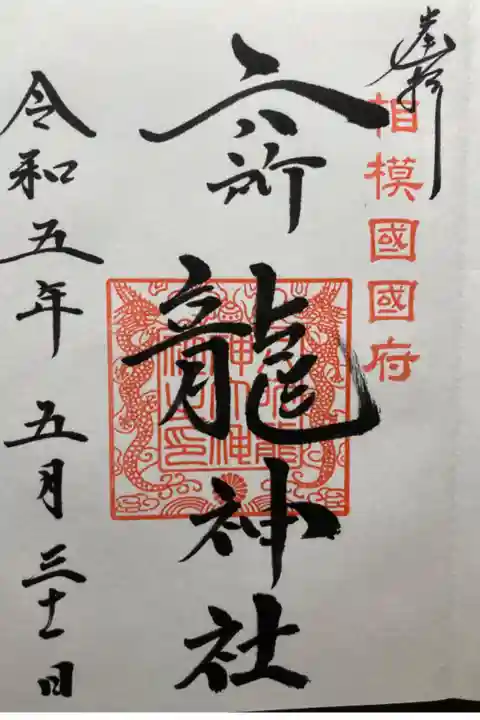 奉拝
相模國國府
六所龍神社
令和五年五月三十一日